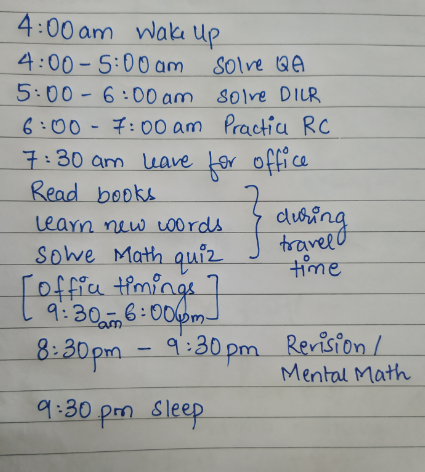 4:00am Wake Up
4:00 - 5:00am Solve QA
5:00 - 6:00am Solve DILR
6:00 - 7:00am Practice RC
7:30 am leave for office
Read books
learn new words
Solve Math quiz
during
travel
time
[Office timings
9:30am - 6:00pm]
8:30pm - 9:30pm Revision/
Mental Math
9:30 pm Sleep